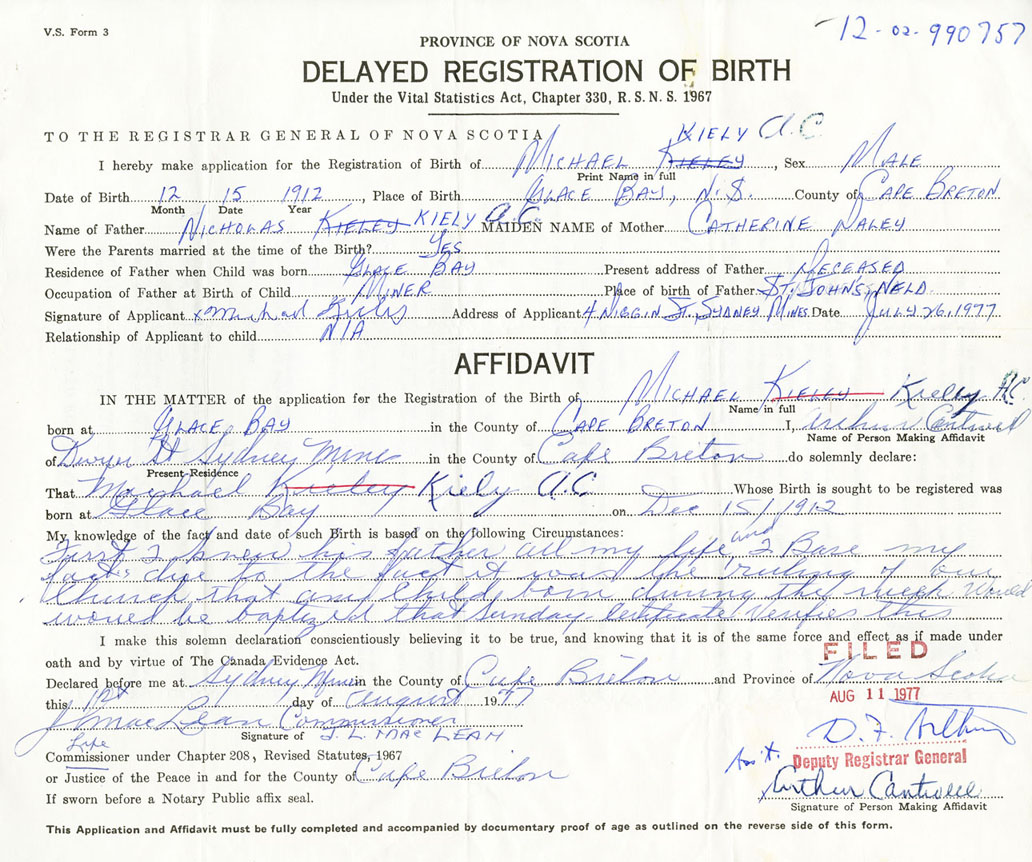 V.S. Form 3
12-02-990757
PROVINCE OF NOVA SCOTIA
DELAYED REGISTRATION OF BIRTH
Under the Vital Statistics Act, Chapter 330, R.S.N.S. 1967
TO THE REGISTRAR GENERAL OF NOVA SCOTIA
KIELY A.C.
I hereby make application for the Registration of Birth of MICHAEL KIELEY, Sex MALE
Print Name in full
Date of Birth 12 15 1912, Place of Birth GLACE BAY, N.S. County of CAPE BRETON
Month Date Year
Name of Father NICHOLAS KIELEY KIELY A.C. MAIDEN NAME of Mother CATHERINE DALEY
Were the Parents married at the time of the Birth? YES
Residence of Father when Child was born GLACE BAY Present address of Father DECEASED
Occupation of Father at Birth of Child MINER Place of birth of Father ST. JOHN'S, NFLD.
Signature of Applicant x Michael Address of Applicant 4 ST. SYDNEY MINES Date JULY 26, 1977
Relationship of Applicant to child N/A
AFFIDAVIT
IN THE MATTER of the application for the Registration of the Birth of MICHAEL KIELEY Kiely A.C.
Name in full
born at GLACE BAY in the County of CAPE BRETON I, Arthur Cantwell
Name of Person Making Affidavit
of Dwyer St Sydney Mines in the County of Cape Breton do solemnly declare:
Present Residence
That Michael Kieley Kiely A.C. Whose Birth is sought to be registered was
born at Glace Bay on Dec 15/1912
My knowledge of the fact and date of such Birth is based on the following Circumstances:
First I knew his father all my life, and I Base my
facts due to the fact it was the ruling of our
Church that any Child born during the week would
would be baptized that Sunday Certificate Verifies this
I make this solemn declaration conscientiously believing it to be true, and knowing that it is of the same force and effect as if made under
oath and by virtue of The Canada Evidence Act.
FILED
Declared before me at Sydney Mines in the County of Cape Breton and Province of Nova Scotia
this 1st day of August 1977
AUG 11 1977
J L MacLean Commissioner
Signature of J. L. MAC LEAN
D. F.
Life
Commissioner under Chapter 208, Revised Statutes, 1967
Ass't. Deputy Registrar General
or Justice of the Peace in and for the County of Cape Breton
Arthur Cantwell
If sworn before a Notary Public affix seal.
Signature of Person Making Affidavit
This Application and Affidavit must be fully completed and accompanied by documentary proof of age as outlined on the reverse side of this form.